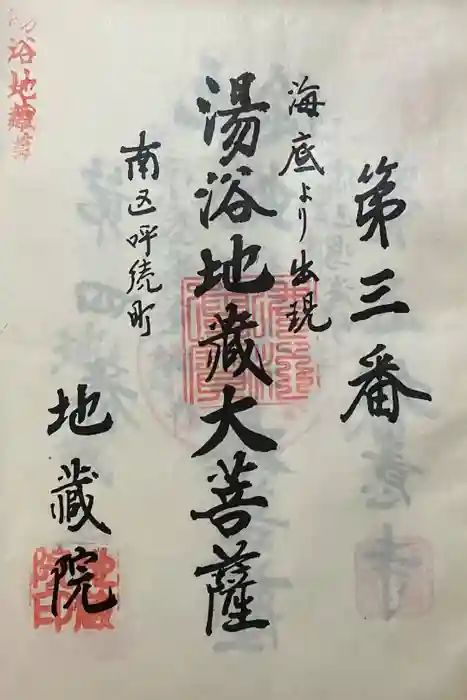 第三番
海底より出現
湯浴地蔵大菩薩
南区呼続町
地蔵院
湯浴地蔵尊